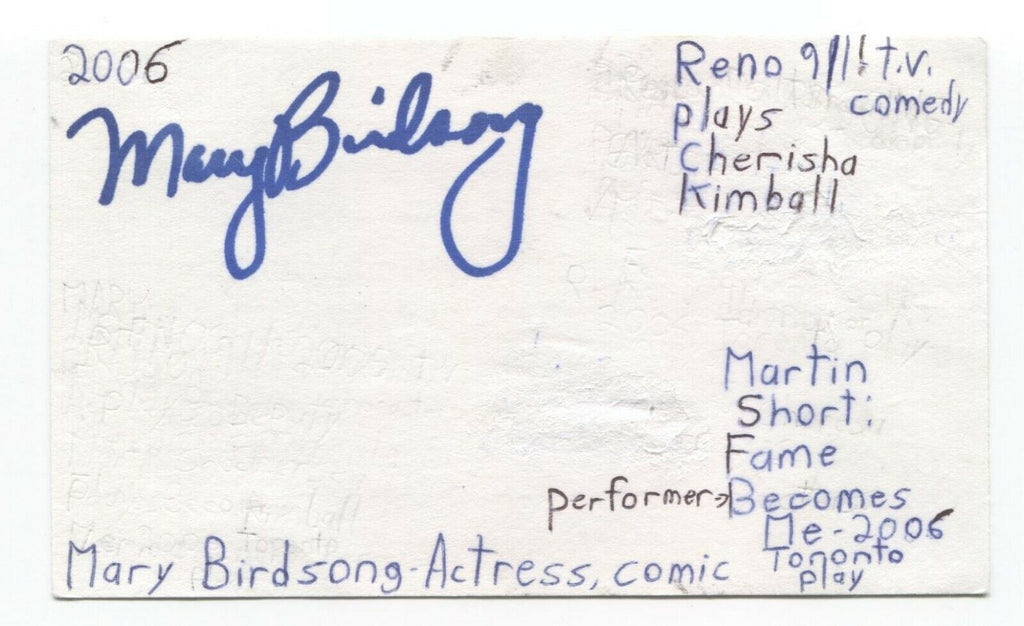 2006
Mary Birdsong
Reno 911! t.v.
comedy
plays
Cherisha
Kimball
Martin
Short:
Fame
performer→Becomes
Me-2006
Toronto
play
Mary Birdsong-Actress, comic